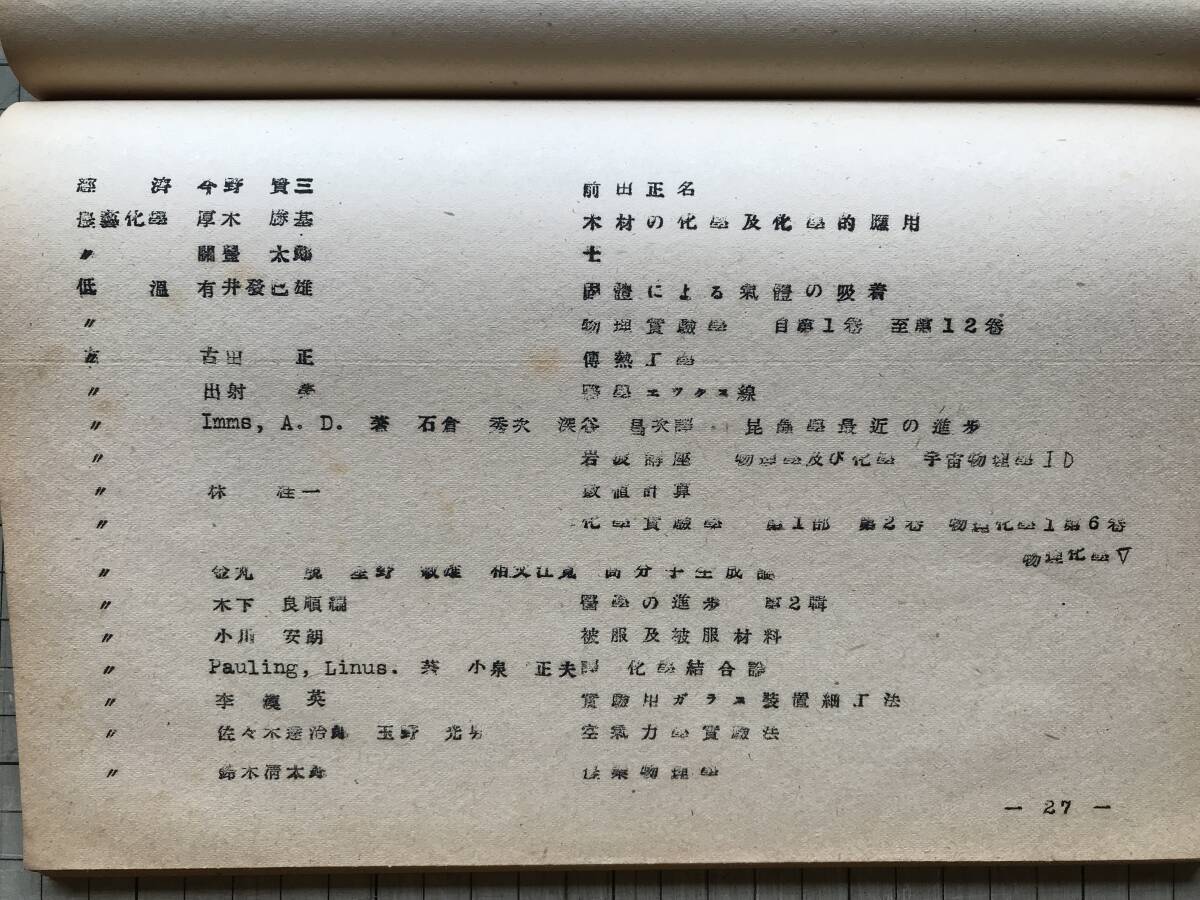 經 濟 今野 賢三 前田正名
農藝化學 厚木 勝基 木材の化學及化學的應用
〃 關豐 太郎 土
低 溫 有井癸巳雄 固體による氣體の吸着
〃 物理實驗學 自第1卷 至第12卷
〃 古田 正 傳熱工學
〃 出射 醫學エックス線
〃 Imms, A. D. 著 石倉 秀次 深谷 昌次譯 昆蟲學最近の進步
〃 岩波講座 物理學及び化學 宇宙物理學ID
〃 林 桂一 數値計算
〃 化學實驗學 第1部 第2卷 物理化學1第6卷
物理化學▽
〃 金丸 競 星野 敏雄 祖父江寬 高分子生成論
〃 木下 良順編 醫學の進步 第2輯
〃 小川 安朗 被服及被服材料
〃 Pauling, Linus. 著 小泉 正夫譯 化學結合論
〃 李 漢英 實驗用ガラス裝置細工法
〃 佐々木達治郎 玉野 光男 空氣力學實驗法
〃 鈴木淸太郎 農業物理學
— 27 —